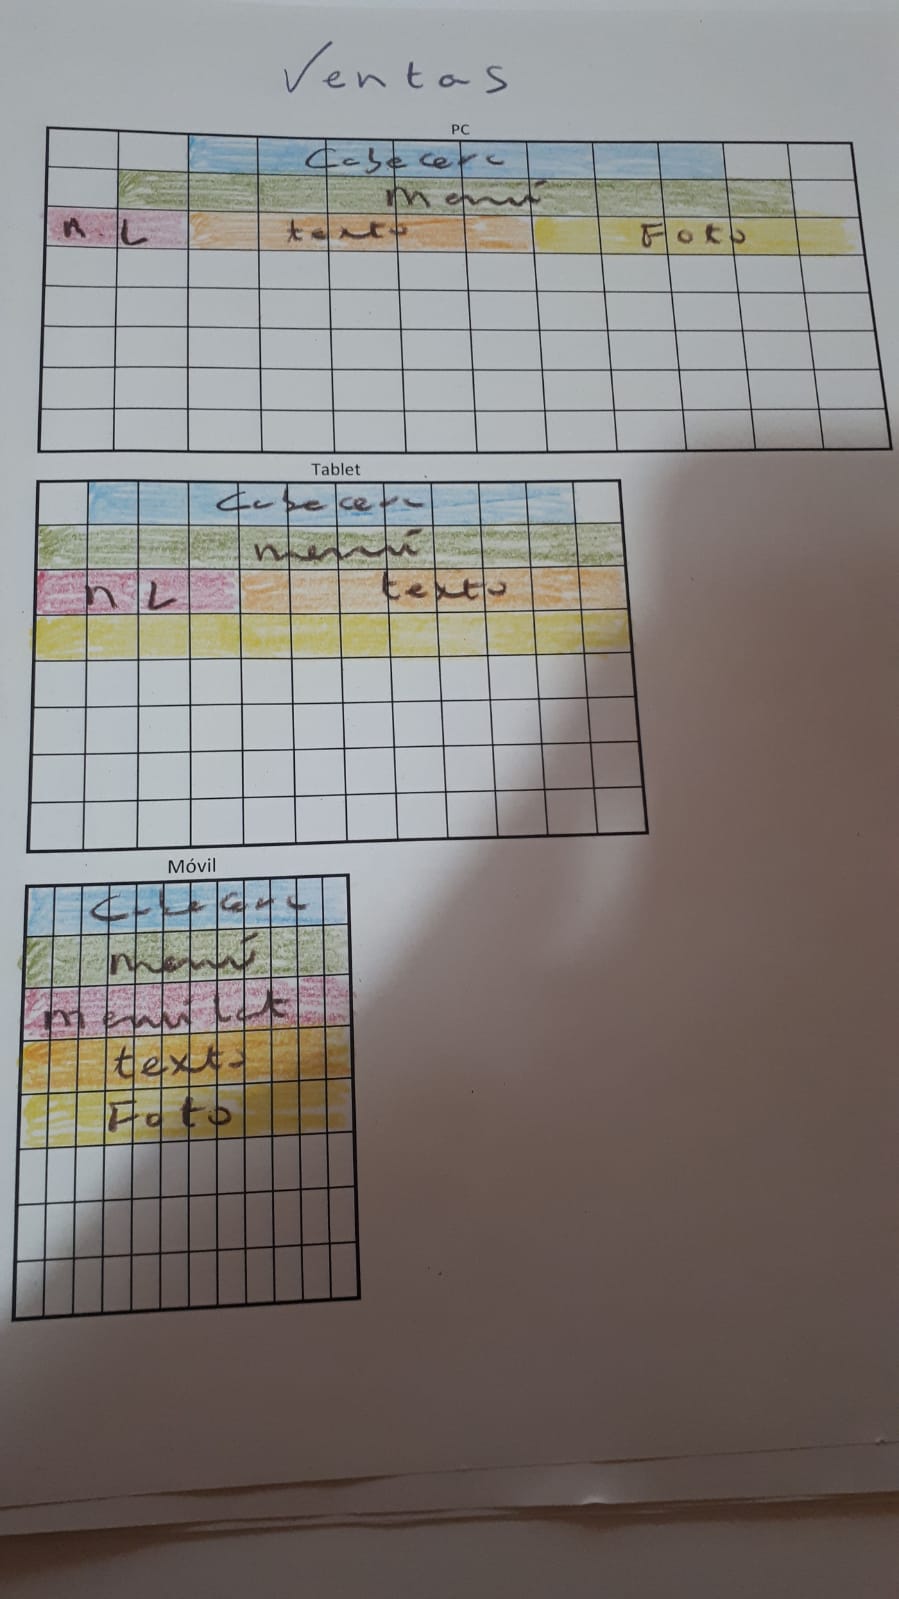 Ventas
PC
Cabecera
menú
m. L texto Foto
Tablet
Cabecera
menú
m L texto
Móvil
Cabecera
menú
menú lat
texto
Foto